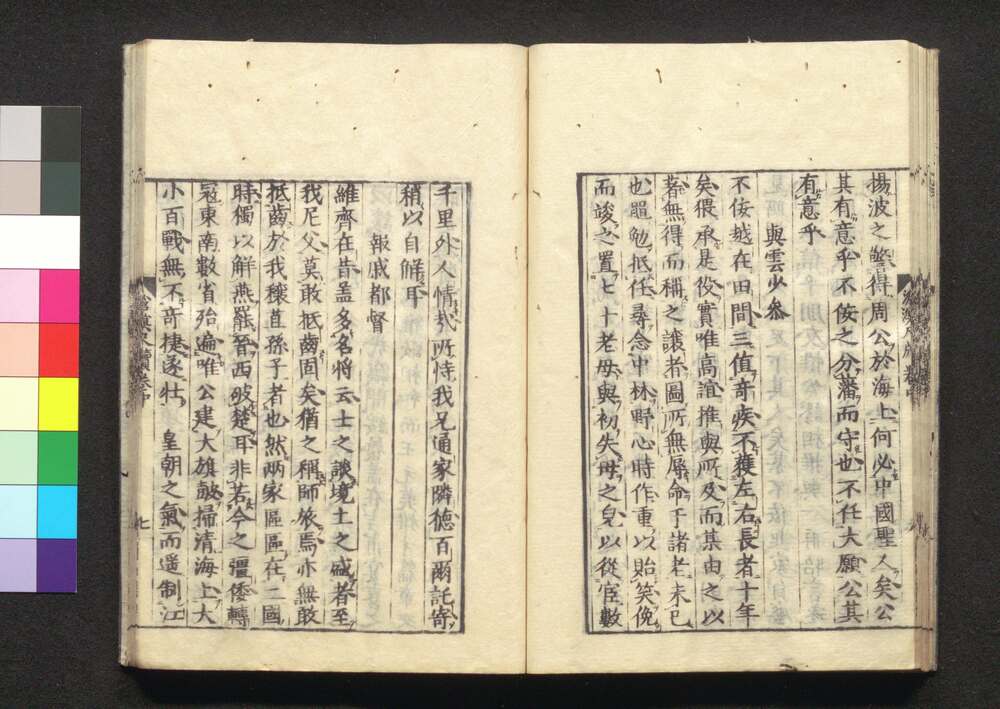 揚波之警得周公於海上何必中國聖人矣公
其有意乎不佞之分藩而守也不任大願公其
有意乎
與雲少參
不佞越在田間三值奇疾不獲左右長者十年
矣猥承是役實唯高誼推與所及而某由之以
藉無得而稱之讓者圖所無辱命于諸老未已
也黽勉抵任尋念中林野心時作重以貽笑俛
而竣之置七十老母與初失母之兒以從宦數
千里外人情哉所恃我兄通家隣德百爾託寄
稍以自解耳
報戚都督
維齊在昔盖多名將云士之談境土之盛者至
我尼父莫敢抵齒固矣猶之稱師旅焉亦無敢
抵齒於我穰苴孫子者也然兩家區區在二國
時獨以解燕罷晉西破楚耳非若今之彊倭轉
寇東南數省殆遍唯公建大旗鼓掃清海上大
小百戰無不奇捷遂壯皇朝之氣而遥制江
七